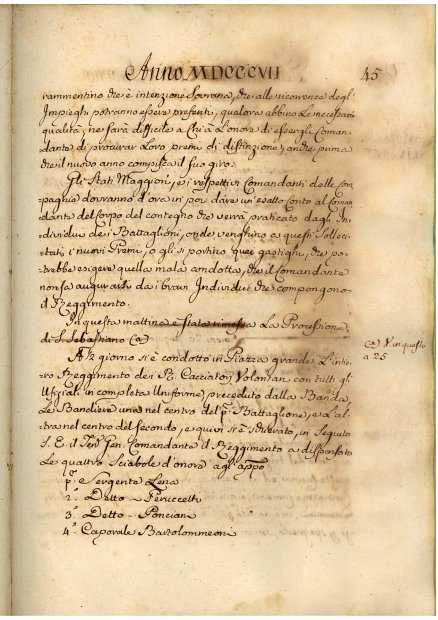 Anno MDCCCVII
45
rammentino che è intenzione Sovrana, che alle vicorrenze degl'
Impieghi potranno essere preferiti, qualora abbino le necessarie
qualità, ne sarà difficile a Chi à L'onore di essergli Coman-
dante di procurar Loro premi di distinzione, anche prima
che il nuovo anno compisca il suo giro.
Gli Stati Maggiori, e i respettivi Comandanti delle Com-
pagnie dovranno d'ora in poi dare un'esatto Conto al Coman-
dante del Corpo del contegno che verrà praticato dagli In-
dividui dei Battaglioni, onde venghino a questi sollec-
itati i nuovi Premi, o gli si portino quei gastighi, che po-
trebbe esigere quella mala condotta, che il Comandante
non sa augurarsi da i bravi Individui che compongono
il Reggimento.
In questa mattina è stata rimessa La Processione
di S. Sebastiano (a)
(a) V in questo
a 25
A ½ giorno si è condotto in Piazza grande L'inti-
ro Reggimento dei R. Cacciatori Volontari con tutti gli
Ufiziali in completa Uniforme, preceduto dalla Banda,
Le Bandiere una nel centro del p.º Battaglione, e L'al-
tra nel centro del secondo, e quivi si è schierato, in seguito
S. E. il Ten. Gen. Comandante il Reggimento a dispensato
Le quattro Sciabole d'onore agl'appo
p.º Sergente Lena
2.º Detto - Feruccetti
3.º Detto - Ponciani
4.º Caporale Bartolommeoni